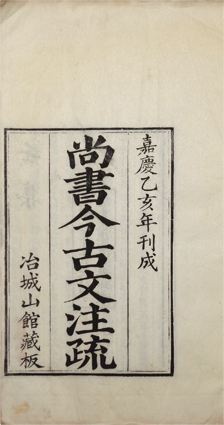 嘉慶乙亥年刊成
尚書今古文注疏
冶城山館藏板